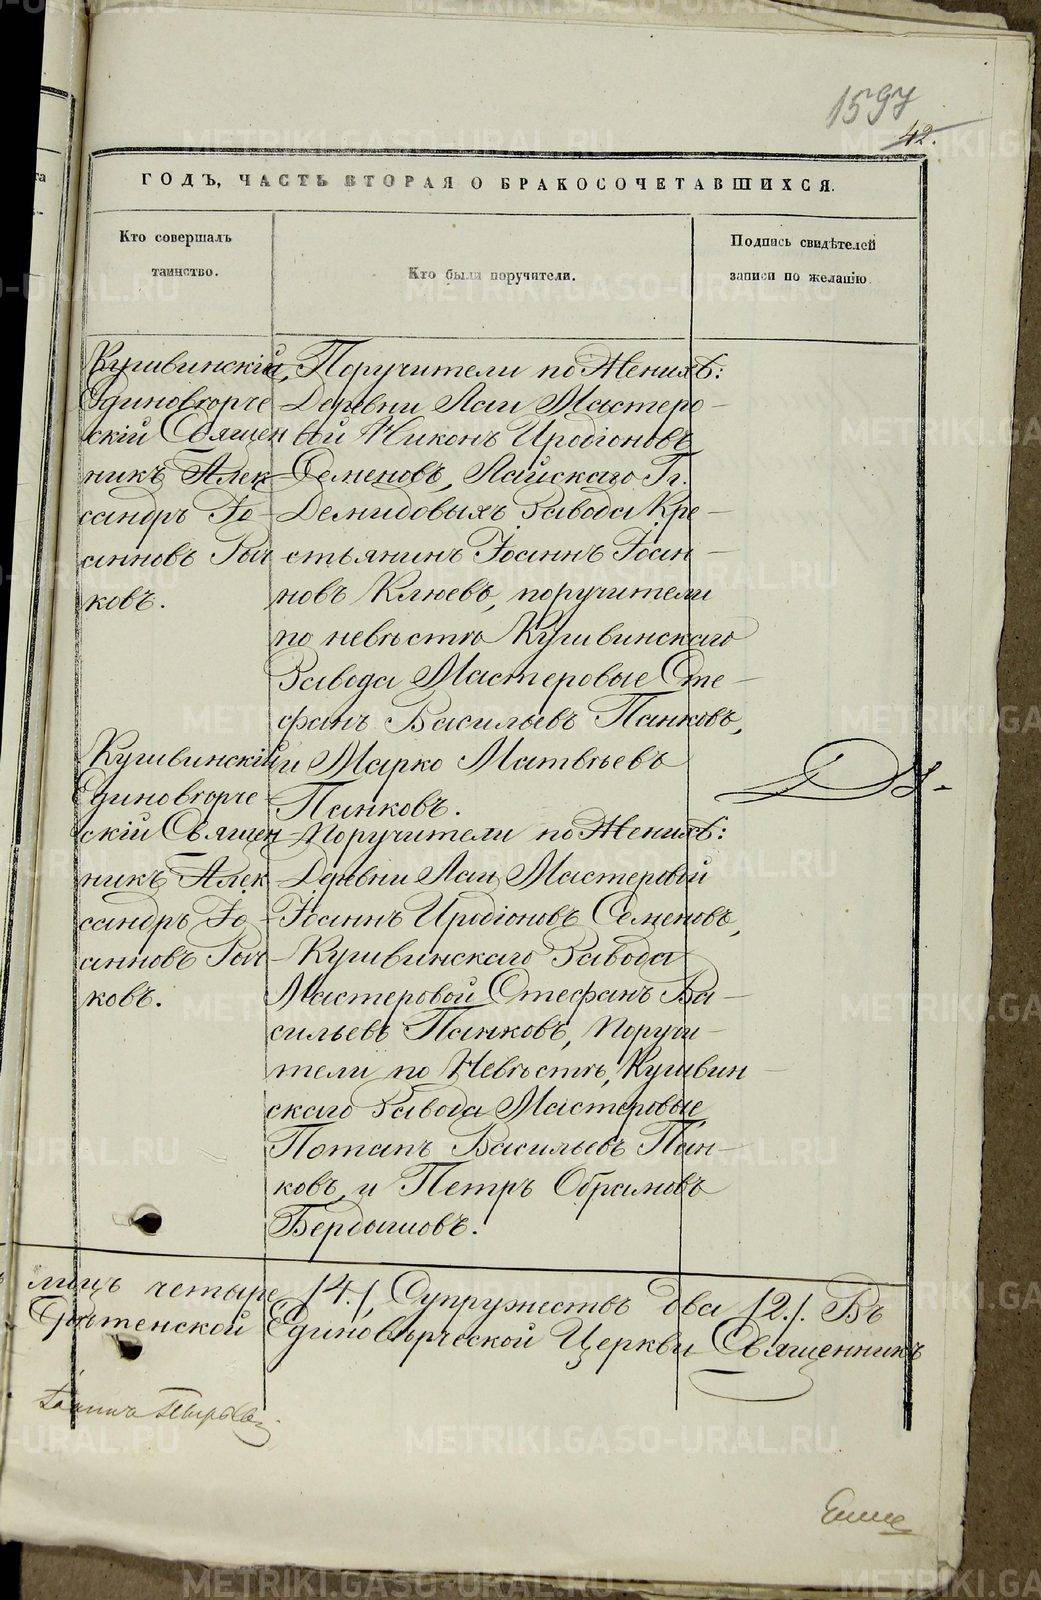 1597
42.
ГОДЪ, ЧАСТЬ ВТОРАЯ О БРАКОСОЧЕТАВШИХСЯ.
Кто совершалъ
таинство.
Кто были поручители.
Подпись свидѣтелей
записи по желанію.
Кушвинскій
Единоверче
скій Священ
никъ Алек
сандръ Іо
анновъ
ковъ.
Поручители по Женихѣ:
Деревни Лаи Мастеро
вой Никонъ Иродіоновъ
Семеновъ, Лайскаго Гг.
Демидовыхъ Завода Кре
стьянинъ Іоаннъ Іоан
новъ Клюевъ, поручители
по невѣстѣ Кушвинскаго
Завода Мастеровые Сте
фанъ Васильевъ Панковъ,
и Марко Матвѣевъ
Панковъ.
Кушвинскій
Единоверче
скій Священ
никъ Алек
сандръ Іо
анновъ
ковъ.
Поручители по Женихѣ:
Деревни Лаи Мастеровой
Іоаннъ Иродіоновъ Семеновъ,
Кушвинскаго Завода
Мастеровой Стефанъ Ва
сильевъ Панковъ, Поручи
тели по Невѣстѣ, Кушвин
скаго Завода Мастеровые
Потапъ Васильевъ Пан
ковъ, и Петръ Обрамовъ
Бердышовъ.
лицъ четыре /4./, Супружествъ два /2./. Въ
Срѣтенской Единовѣрческой Церкви Священникъ
Іоаннъ
METRIKI.GASO-URAL.RU